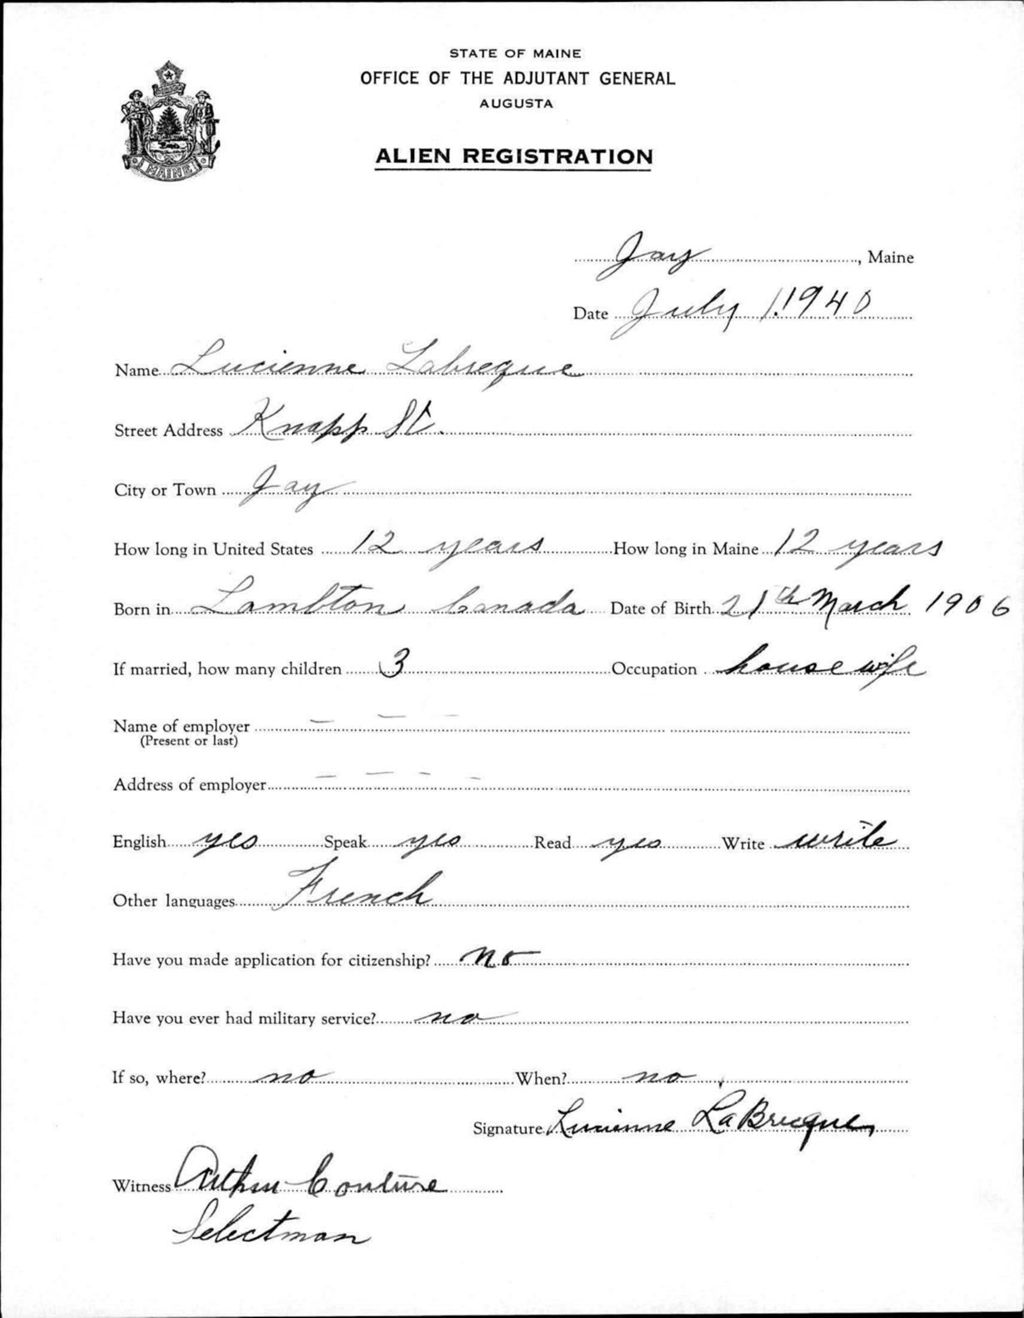 STATE OF MAINE
OFFICE OF THE ADJUTANT GENERAL
AUGUSTA
ALIEN REGISTRATION
MAINE
Jay, Maine
Date July 1. 1940
Name Lucienne Labreque
Street Address Knapp St.
City or Town Jay
How long in United States 12 years How long in Maine 12 years
Born in Lambton Canada Date of Birth 21th March 1906
If married, how many children 3 Occupation house wife
Name of employer — — —
(Present or last)
Address of employer — — — —
English yes Speak yes Read yes Write write
Other languages French
Have you made application for citizenship? no
Have you ever had military service? no
If so, where? no When? no
Signature Lucienne LaBrecque
Witness Arthur Couture
Selectman